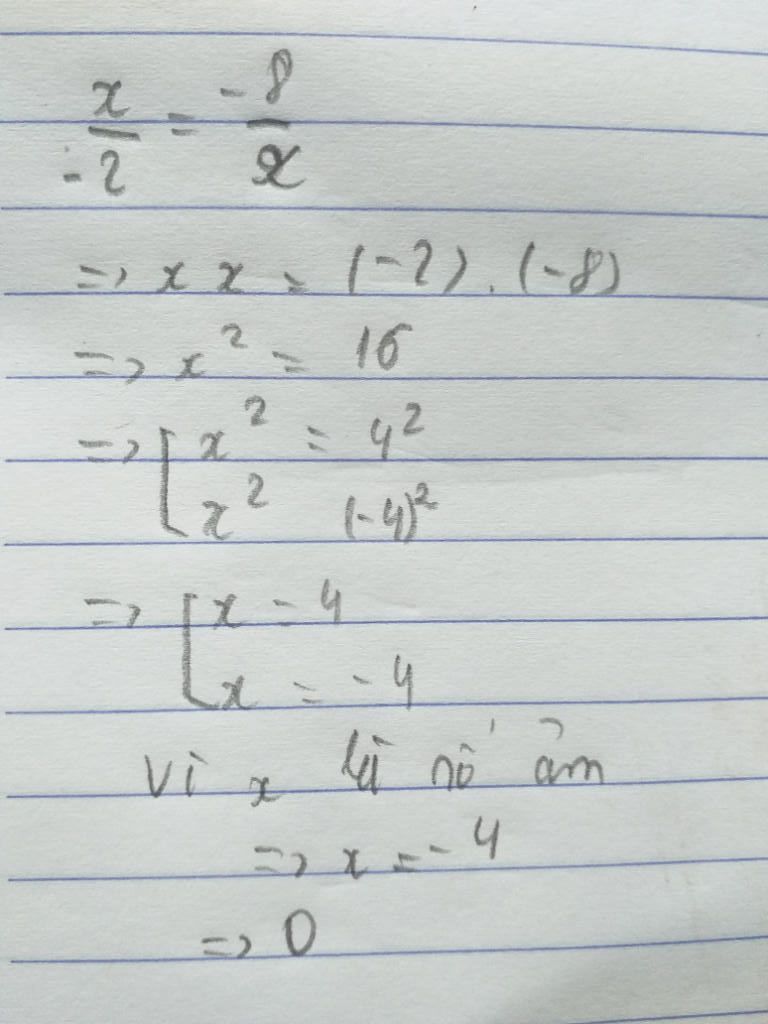 x/-2 = -8/x
=> x x = (-2) . (-8)
=> x² = 16
=> [ x² = 4²
x² (-4)²
=> [ x = 4
x = -4
Vì x là số âm
=> x = -4
=> D